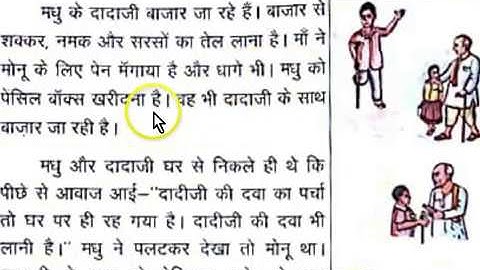 मधु के दादाजी बाजार जा रहे हैं। बाजार से
शक्कर, नमक और सरसों का तेल लाना है। माँ ने
मोनू के लिए पेन मँगाया है और धागे भी। मधु को
पेसिल बॉक्स खरीदना है। वह भी दादाजी के साथ
बाज़ार जा रही है।
मधु और दादाजी घर से निकले ही थे कि
पीछे से आवाज आई–"दादीजी की दवा का पर्चा
तो घर पर ही रह गया है। दादीजी की दवा भी
लानी है।" मधु ने पलटकर देखा तो मोनू था।